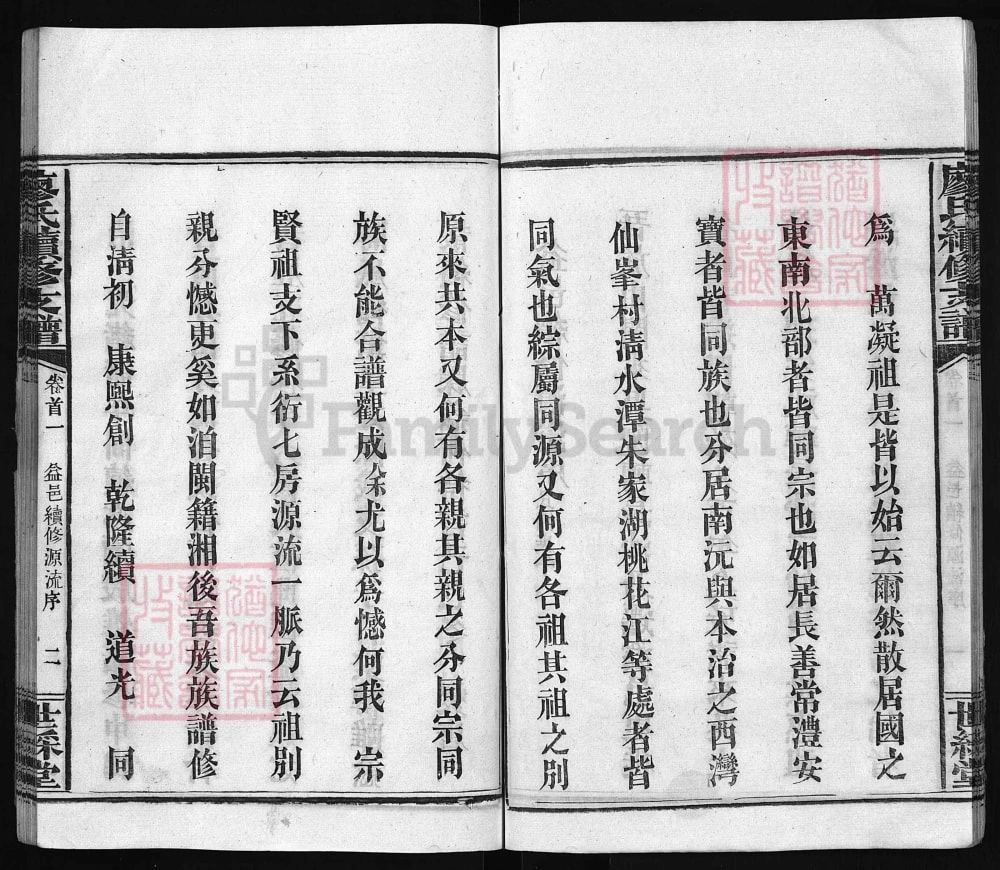 廖氏續修支譜
世綵堂
爲 萬凝祖是皆以始云爾然散居國之
東南北部者皆同宗也如居長善常澧安
寶者皆同族也分居南沅與本治之西灣
仙峯村淸水潭朱家湖桃花江等處者皆
同氣也綜屬同源又何有各祖其祖之別
原來共本又何有各親其親之分同宗同
族不能合譜觀成余尤以爲憾何我 宗
賢祖支下系衍七房源流一脈乃云祖別
親分憾更奚如洎閩籍湘後吾族族譜修
自淸初 康熙創 乾隆續 道光 同
廖氏續修支譜
卷首一 益邑續修源流序 二
世綵堂
FamilySearch